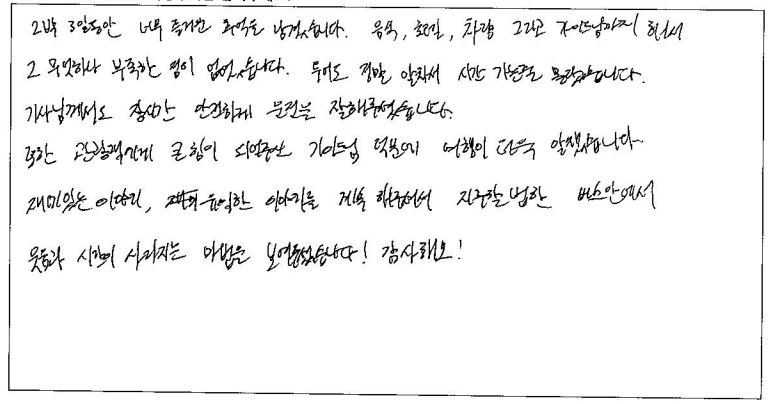 2박 3일동안 너무 즐거운 추억을 남겼습니다. 음식, 호텔, 차량 그리고 가이드님까지 해서
그 무엇하나 부족한 점이 없었습니다. 투어도 정말 알차서 시간 가는줄 몰랐습니다.
기사님께서도 장시간 안전하게 운전을 잘해주셨습니다.
또한 관광객에게 큰 힘이 되어주신 가이드님 덕분에 여행이 더욱 알찼습니다~
재미있는 이야기, 유익한 이야기를 계속 해주셔서 지루할 법한 버스안에서
웃음과 시간이 사라지는 마법을 보여주셨습니다! 감사해요!